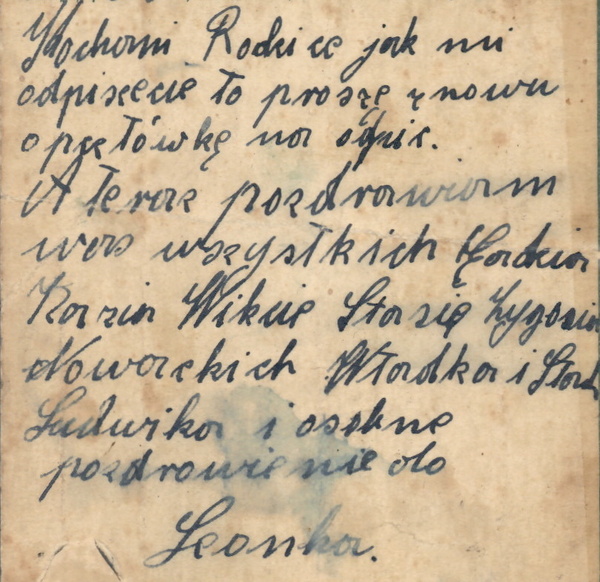 Kochani Rodzice jak mi
odpiszecie to proszę znowu
o pocztówkę na odpis.
A teraz pozdrawiam
was wszystkich
Kazia Wikcie Stasię Zygosia
Nowackich Władka i
Ludwika i osobne
pozdrowienie do
Leonka.